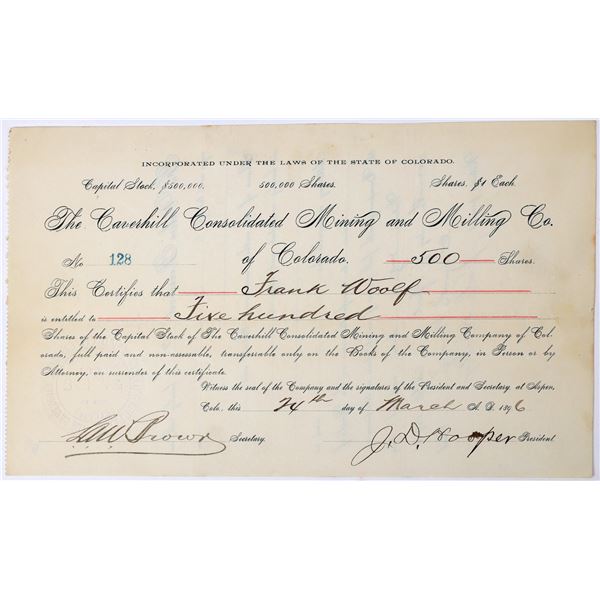 INCORPORATED UNDER THE LAWS OF THE STATE OF COLORADO.
Capital Stock, $500,000. 500,000 Shares. Shares, $1 Each.
The Caverhill Consolidated Mining and Milling Co.
No 128 of Colorado. 500 Shares.
This Certifies that Frank Woolf
is entitled to Five hundred
Shares of the Capital Stock of The Caverhill Consolidated Mining and Milling Company of Col-
orado, full paid and non-assessable, transferrable only on the Books of the Company, in Person or by
Attorney, on surrender of this certificate.
Witness the seal of the Company and the signatures of the President and Secretary, at Aspen,
Colo. this 24th day of March A. D. 1896
Brown Secretary. J. D. Hooper President